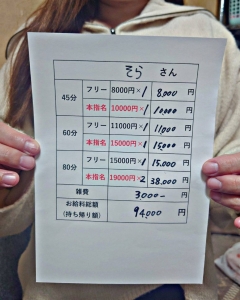 そら さん
45分 フリー 8000円×1 8,000 円
本指名 10000円×1 10,000 円
60分 フリー 11000円×1 11,000 円
本指名 15000円×1 15,000 円
80分 フリー 15000円×1 15,000 円
本指名 19000円×2 38,000 円
雑費 3000- 円
お給料総額
(持ち帰り額) 94,000 円